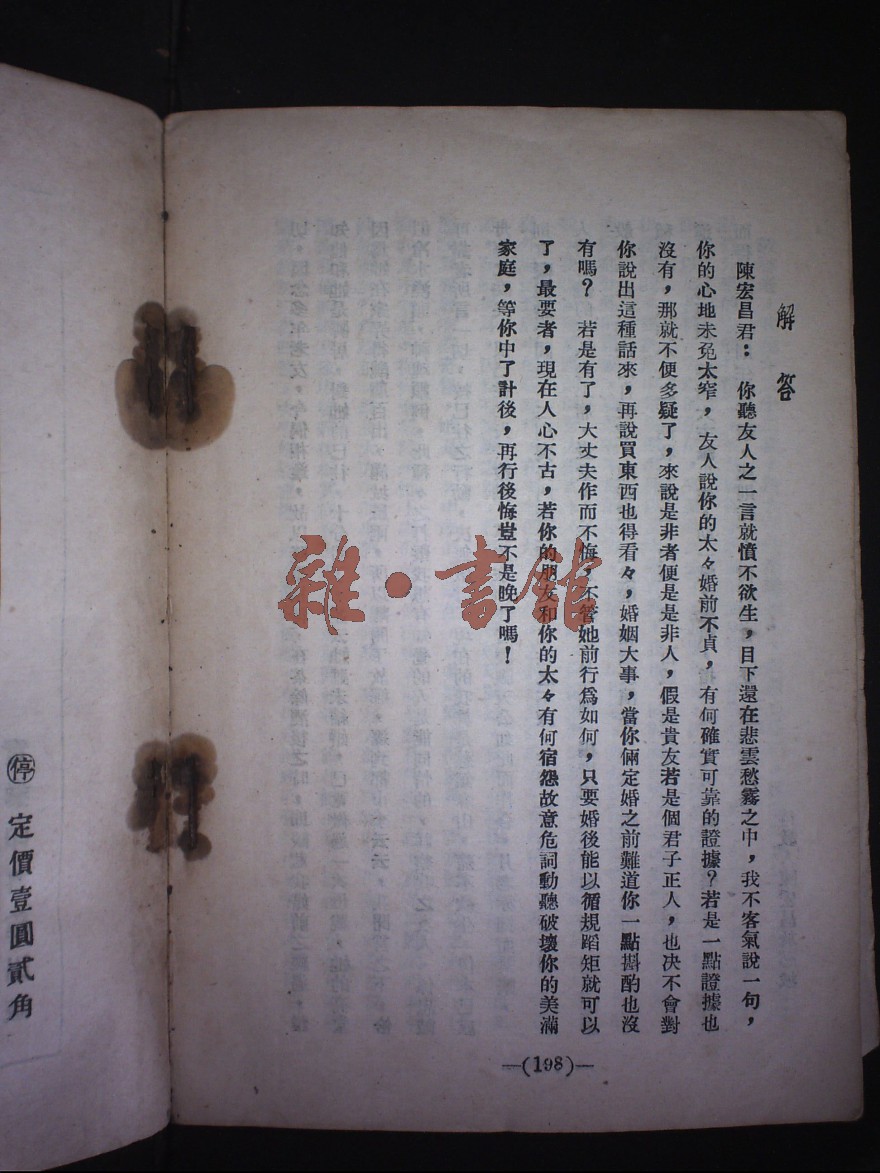 解答
陳宏昌君：　你聽友人之一言就憤不欲生，目下還在悲雲愁霧之中，我不客氣說一句，
你的心地未免太窄，友人說你的太々婚前不貞，有何確實可靠的證據？若是一點證據也
沒有，那就不便多疑了，來說是非者便是是非人，假是貴友若是個君子正人，也决不會對
你說出這種話來，再說買東西也得看々，婚姻大事，當你倆定婚之前難道你一點斟酌也沒
有嗎？　若是有了，大丈夫作而不悔，不管她前行爲如何，只要婚後能以循規蹈矩就可以
了，最要者，現在人心不古，若你的朋友和你的太々有何宿怨故意危詞動聽破壞你的美滿
家庭，等你中了計後，再行後悔豈不是晚了嗎！
—(198)—
雜·書館
停 定價壹圓貳角